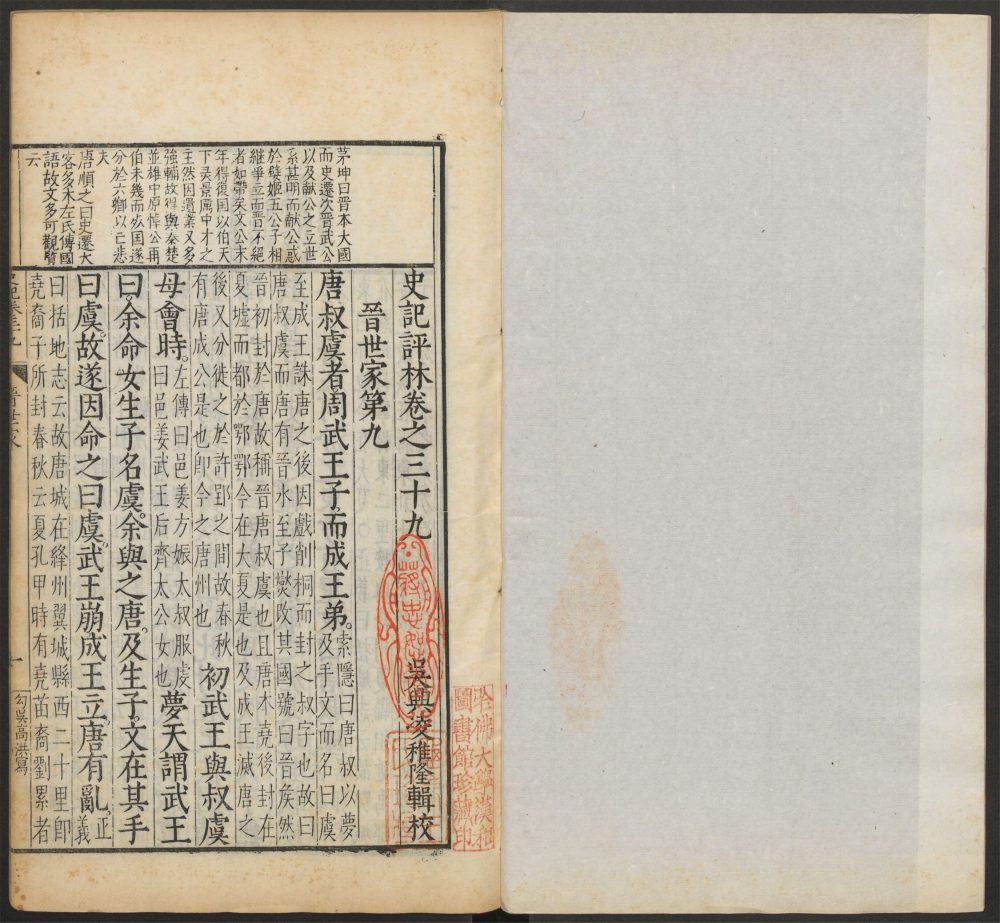 史記評林卷之三十九
吳興凌稚隆輯校
晉世家第九
唐叔虞者周武王子而成王弟。索隱曰唐叔以夢及手文而名曰虞
至成王誅唐之後因戲削桐而封之叔字也故曰
唐叔虞而唐有晉水至子燮改其國號曰晉侯然
晉初封於唐故稱晉唐叔虞也且唐本堯後封在
夏墟而都於鄂鄂今在大夏是也及成王滅唐之
後又分徙之於許郢之間故春秋
有唐成公是也即今之唐州也
初武王與叔虞
母會時。左傳曰邑姜方娠太叔服虔曰邑姜武王后齊太公女也夢天謂武王
曰余命女生子名虞余與之唐及生子文在其手
曰虞。故遂因命之曰虞。武王崩成王立唐有亂。正義
曰括地志云故唐城在絳州翼城縣西二十里即
堯裔子所封春秋云夏孔甲時有堯苗裔劉累者
茅坤曰晉本大國
而史遷次晉武公
以及獻公之立世
系甚明而獻公惑
於驪姬五公子相
繼爭立而晉不絕
者如帶矣文公末
年得復國以伯天
下吳景厲中才之
主然因遺業又多
強輔故得與秦楚
並雄中原悼公再
伯未幾而亦国遂
分於六卿以亡悲
夫
唐順之曰史遷大
客多木左氏傳國
語故文多可觀覽
云
晉世家
一
勾吳高洪寫
哈佛大學漢和
圖書館珍藏印